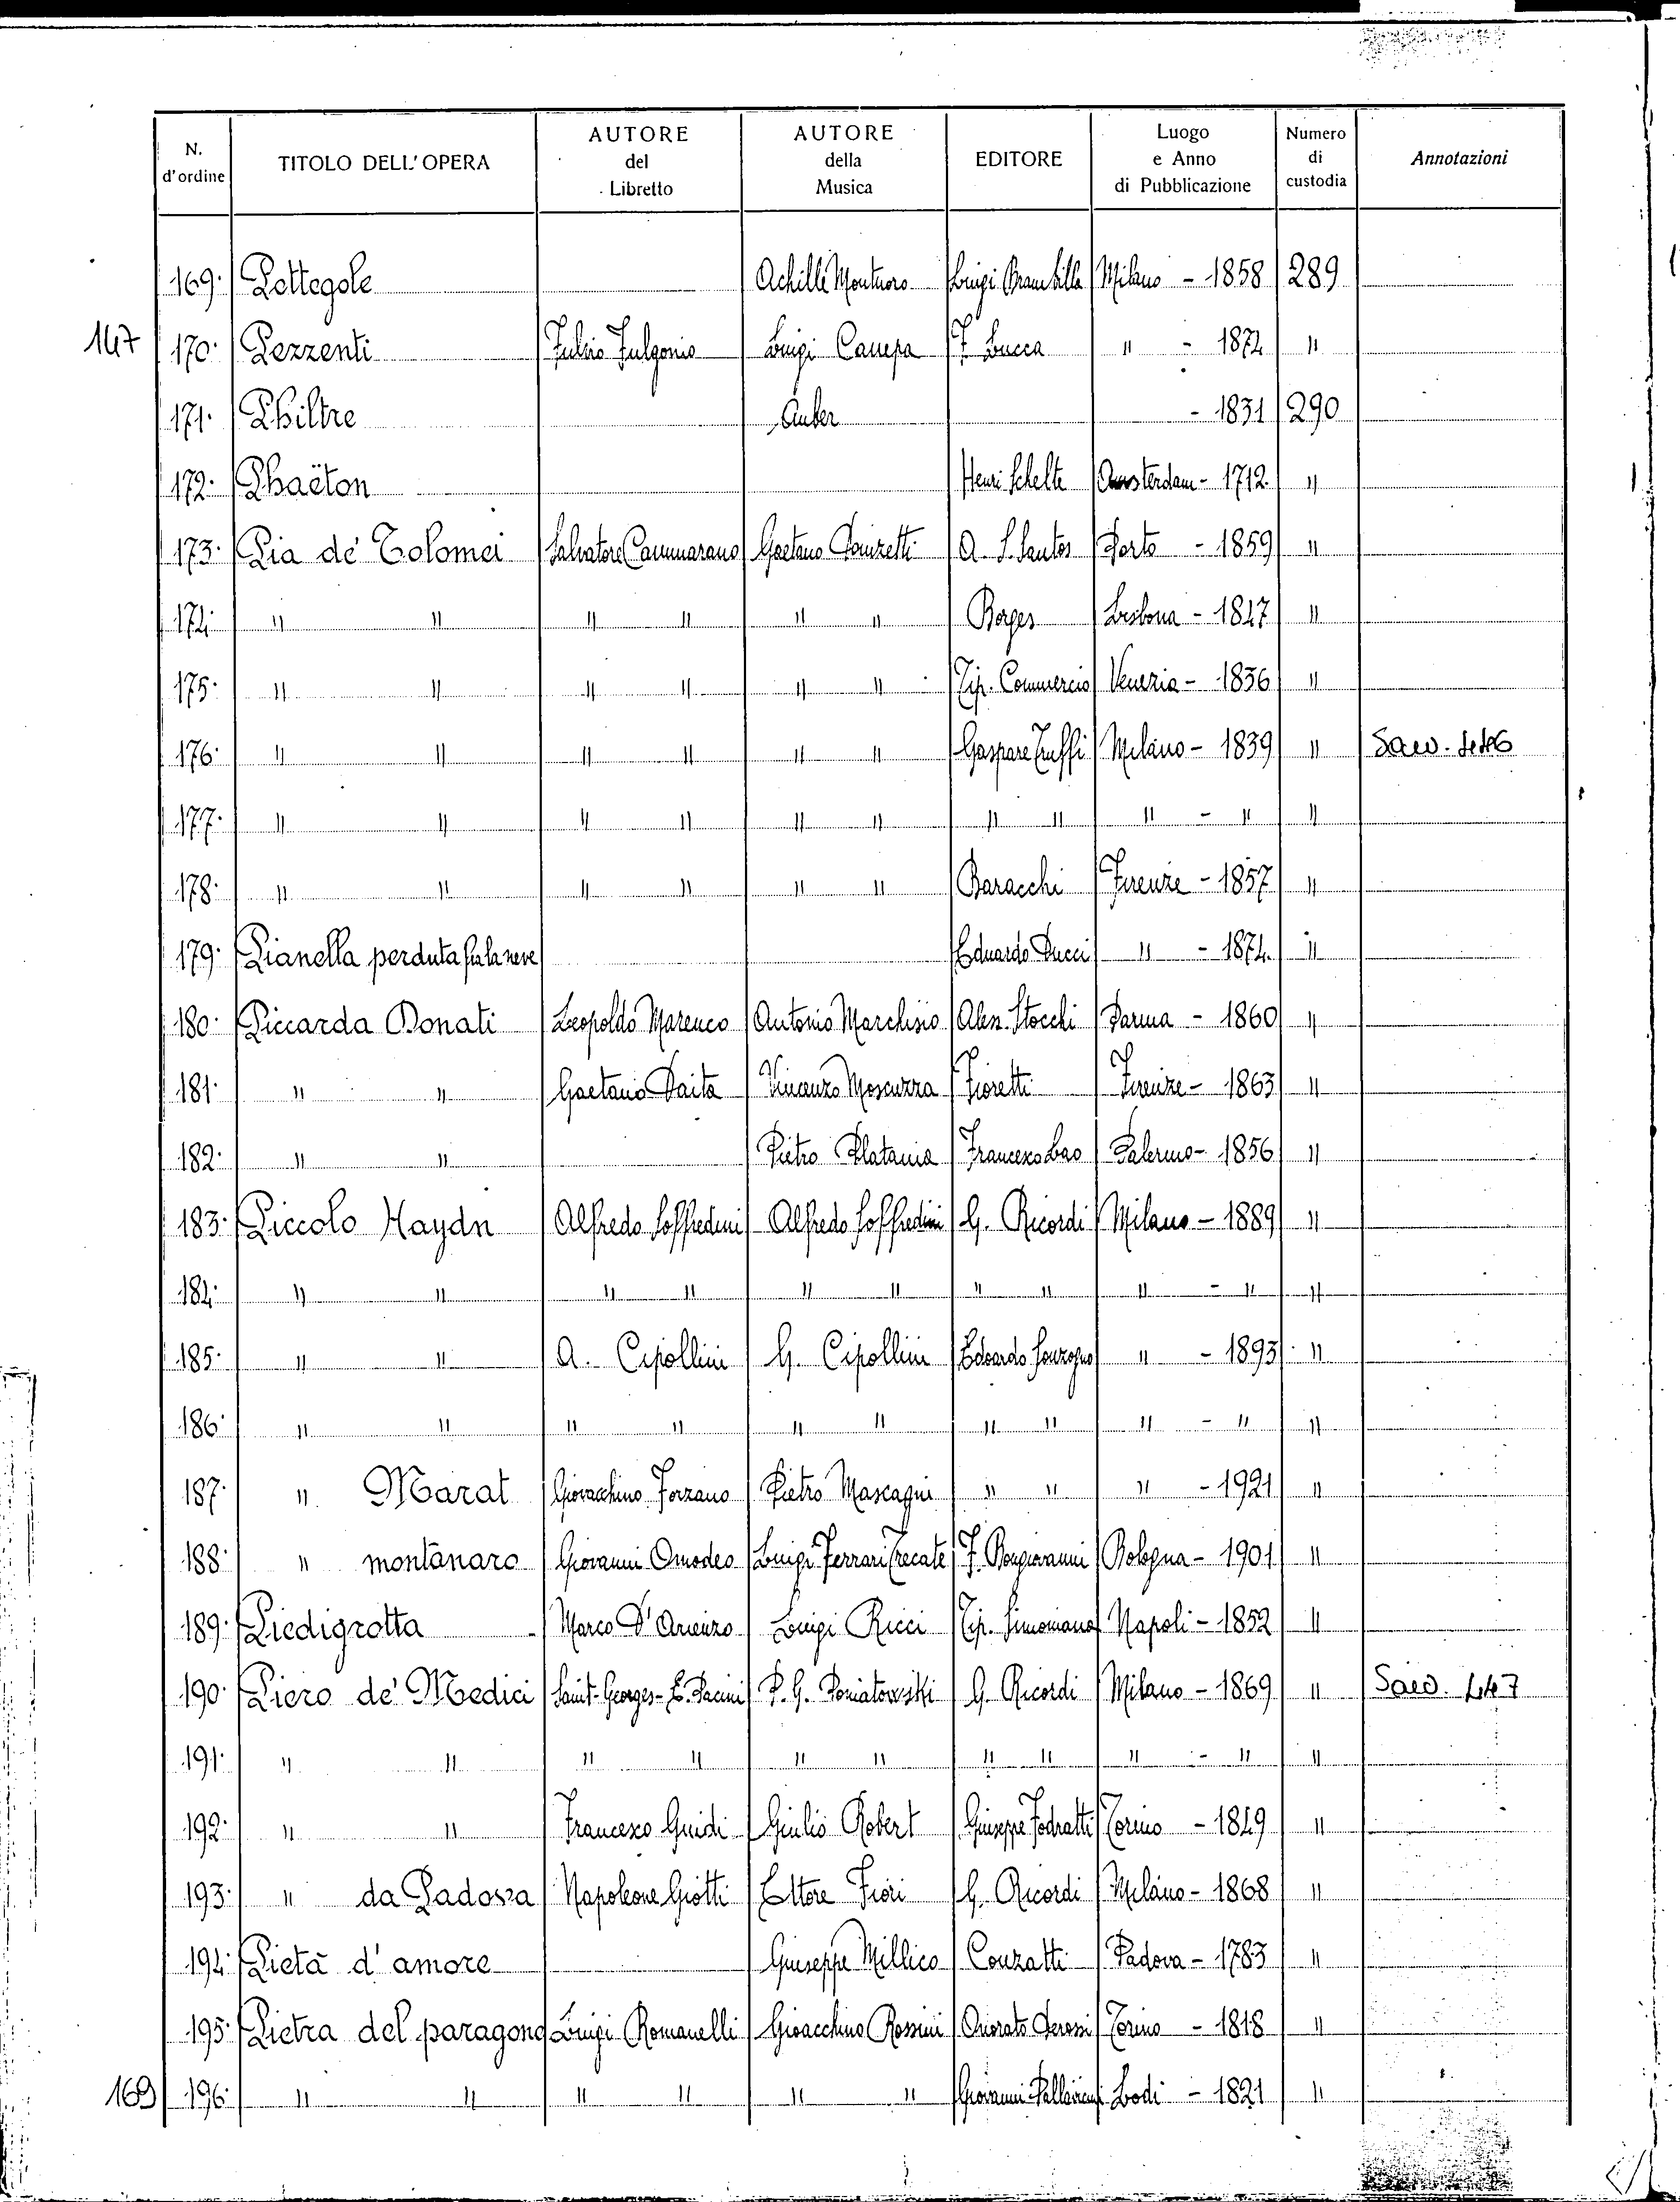 N. d'ordine | TITOLO DELL'OPERA | AUTORE del Libretto | AUTORE della Musica | EDITORE | Luogo e Anno di Pubblicazione | Numero di custodia | Annotazioni
169. Pettegole Achille Montuoro Luigi Brambilla Milano - 1858 289
147 170. Pezzenti Fulvio Fulgonio Luigi Canepa F. Lucca " - 1874 "
171. Philtre Auber - 1831 290
172. Phaëton Henri Schelte Amsterdam - 1712 "
173. Pia de' Tolomei Salvatore Cammarano Gaetano Donizetti A. S. Santos Porto - 1859 "
174. " " " " " " Borges Lisbona - 1847 "
175. " " " " " " Tip. Commercio Venezia - 1836 "
176. " " " " " " Gaspare Truffi Milano - 1839 "
177. " " " " " " " " " - " "
178. " " " " " " Baracchi Firenze - 1857 "
179. Pianella perduta fra la neve Eduardo Ducci " - 1874. "
180. Piccarda Donati Leopoldo Marenco Antonio Marchisio Aless. Stocchi Parma - 1860 "
181. " " Gaetano Daita Vincenzo Moscuzza Fioretti Firenze - 1863 "
182. " " Pietro Platania Francesco Lao Palermo - 1856 "
183. Piccolo Haydn Alfredo Soffredini Alfredo Soffredini G. Ricordi Milano - 1889 "
184. " " " " " " " " " - " "
185. " " A. Cipollini G. Cipollini Edoardo Sonzogno " - 1893 "
186. " " " " " " " " " - " "
187. " Marat Giovacchino Forzano Pietro Mascagni " " " - 1921 "
188. " montanaro Giovanni Omodeo Luigi Ferrari Trecate F. Bongiovanni Bologna - 1901 "
189. Piedigrotta Marco D'Arienzo Luigi Ricci Tip. Simoniana Napoli - 1852 "
190. Piero de' Medici Saint-Georges - E. Pacini P. G. Poniatowski G. Ricordi Milano - 1869 " 447
191. " " " " " " " " " - " "
192. " " Francesco Guidi Giulio Robert Giuseppe Fodratti Torino - 1849 "
193. " da Padova Napoleone Giotti Ettore Fiori G. Ricordi Milano - 1868 "
194. Pietà d'amore Giuseppe Millico Conzatti Padova - 1783 "
195. Pietra del paragone Luigi Romanelli Gioacchino Rossini Onorato Derossi Torino - 1818 "
169 196. " " " " " " Giovanni Pallavicini Lodi - 1821 "